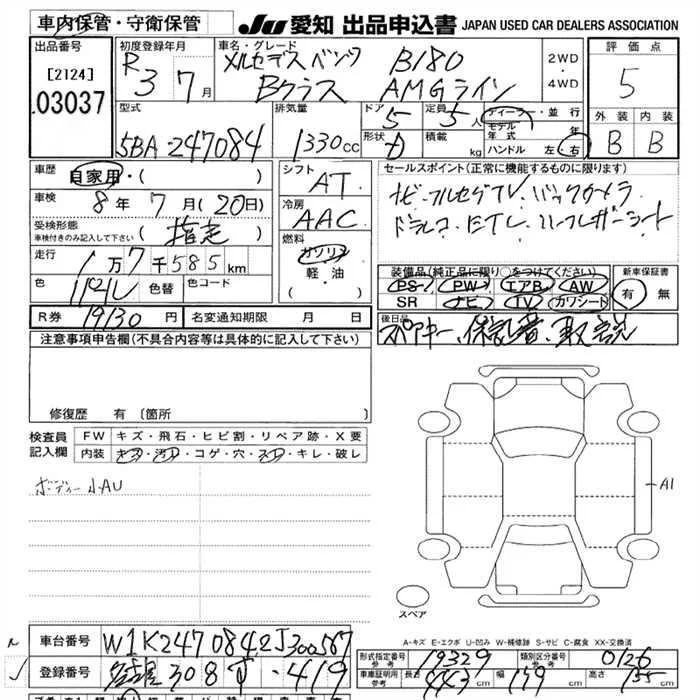 車内保管・守衛保管
JU 愛知 出品申込書 JAPAN USED CAR DEALERS ASSOCIATION
出品番号
[2124]
03037
初度登録年月
R 3 7月
車名・グレード
メルセデスベンツ B180
Bクラス AMGライン
2WD
・
4WD
評価点
5
外装 内装
B B
型式
5BA-247084
排気量
1330cc
ドア
5
形状
定員
5人
積載
kg
ディーラー・並行
モデル年式 年
ハンドル 左・右
車歴
自家用・( )
車検
8年 7月 (20日)
受検形態
車検付きのみ記入して下さい
( 指定 )
走行
1万7千585km
色
色替
色コード
R券
19130円
名変通知期限 月 日
シフト
AT
冷房
AAC
燃料
ガソリン
軽・油
( )
セールスポイント(正常に機能するものに限ります)
ナビ・フルセグTV バックカメラ
ドラレコ ETC ハーフレザーシート
装備品(純正品に限り○をつけてください)
PS PW エアB AW
SR ナビ TV カワシート
新車保証書
有 無
後日品
スペアキー、保証書、取説
注意事項申告欄(不具合内容等は具体的に記入して下さい)
修復歴 有 〔箇所
検査員
記入欄
FW キズ・飛石・ヒビ割・リペア跡・X要
内装 キズ・汚れ・コゲ・穴・スレ・キレ・破レ
ボディー小AU
A1
スペア
A-キズ E-エクボ U-凹み W-補修跡 S-サビ C-腐食 XX-交換済
車台番号
W1K2470842J300567
登録番号
名古屋 308 ・419
形式指定番号
参考
19329
類別区分番号
参考
0126
車庫証明用
参考
長さ
443cm
幅
179cm
高さ
155cm